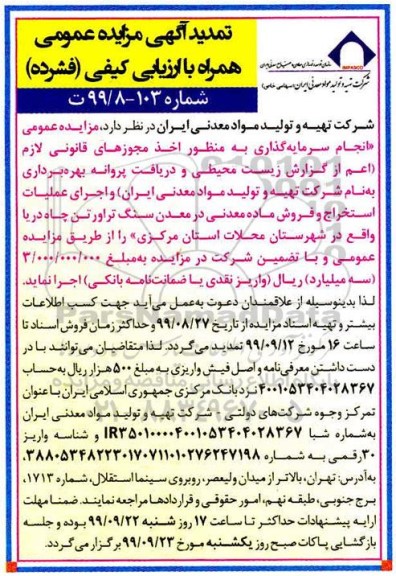 تمدید آگهی مزایده عمومی
همراه با ارزیابی کیفی (فشرده)
شماره ۱۰۳-۹۹/۸ ت
IMPASCO
شرکت تهیه و تولید مواد معدنی ایران (سهامی خاص)
شرکت تهیه و تولید مواد معدنی ایران در نظر دارد، مزایده عمومی
«انجام سرمایه‌گذاری به منظور اخذ مجوزهای قانونی لازم
(اعم از گزارش زیست محیطی و دریافت پروانه بهره‌برداری
به‌نام شرکت تهیه و تولید مواد معدنی ایران) و اجرای عملیات
استخراج و فروش ماده معدنی در معدن سنگ تراورتن چاه دریا
واقع در شهرستان محلات استان مرکزی» را از طریق مزایده
عمومی و با تضمین شرکت در مزایده به‌مبلغ ۳/۰۰۰/۰۰۰/۰۰۰
(سه میلیارد) ریال (واریز نقدی یا ضمانت‌نامه بانکی) اجرا نماید.
لذا بدینوسیله از علاقمندان دعوت به‌عمل می‌آید جهت کسب اطلاعات
بیشتر و تهیه اسناد مزایده از تاریخ ۹۹/۰۸/۲۷ و حداکثر زمان فروش اسناد تا
ساعت ۱۶ مورخ ۹۹/۰۹/۱۲ تمدید می‌گردد. لذا متقاضیان می‌توانند با در
دست داشتن معرفی‌نامه و اصل فیش واریزی به مبلغ ۵۰۰ هزار ریال به‌حساب
۴۰۰۱۰۵۳۴۰۴۰۲۸۳۶۷ نزد بانک مرکزی جمهوری اسلامی ایران با عنوان
تمرکز وجوه شرکت‌های دولتی - شرکت تهیه و تولید مواد معدنی ایران
به‌شماره شبا IR۳۵۰۱۰۰۰۰۴۰۰۱۰۵۳۴۰۴۰۲۸۳۶۷ و شناسه واریز
۳۰ رقمی به شماره ۳۸۸۰۵۳۴۸۲۲۳۰۱۷۰۷۱۱۰۱۰۲۷۶۲۴۷۱۹۸،
به‌آدرس: تهران، بالاتر از میدان ولیعصر، روبروی سینما استقلال، شماره ۱۷۱۳،
برج جنوبی، طبقه نهم، امور حقوقی و قراردادها مراجعه نمایند. ضمنا مهلت
ارایه پیشنهادات حداکثر تا ساعت ۱۷ روز شنبه ۹۹/۰۹/۲۲ بوده و جلسه
بازگشایی پاکات صبح روز یکشنبه مورخ ۹۹/۰۹/۲۳ برگزار می‌گردد.
ParsNamadData